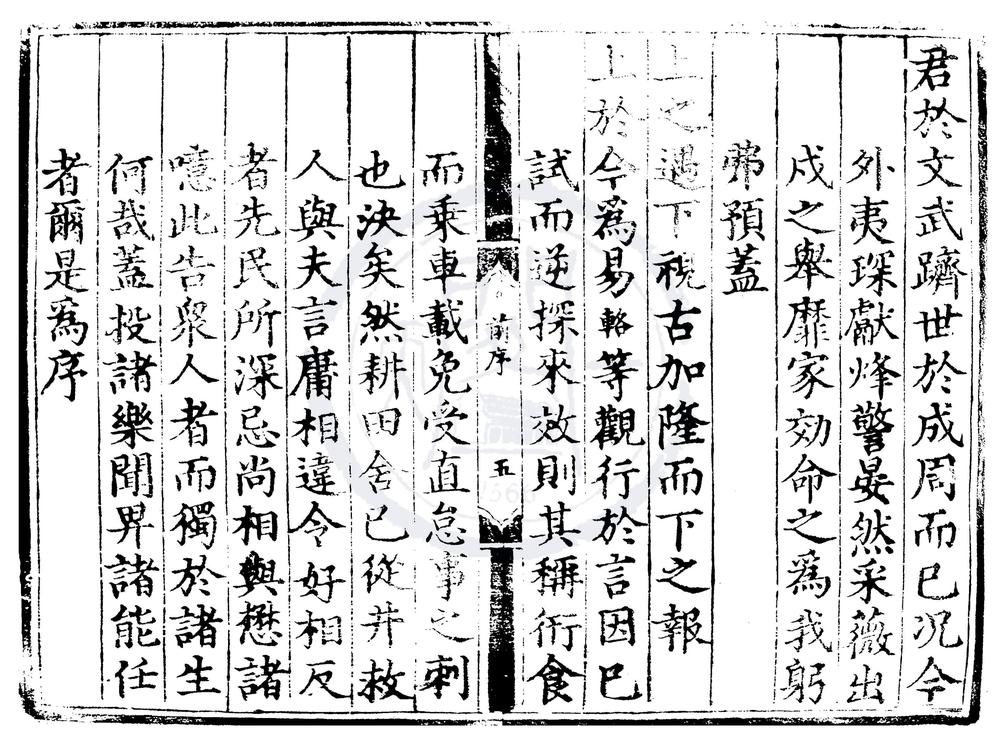 君於文武躋世於成周而已况今
外夷琛獻烽警晏然采薇出
戍之舉靡家効命之爲我躬
弗預蓋
上之遇下視古加隆而下之報
上於今爲易輅等觀行於言因已
試而逆探來效則其稱衎食
前序
五
而乘車載免受直怠事之刺
也決矣然耕田舍已從井救
人與夫言庸相違令好相反
者先民所深忌尚相與懋諸
噫此告衆人者而獨於諸生
何哉蓋投諸樂聞畀諸能任
者爾是爲序